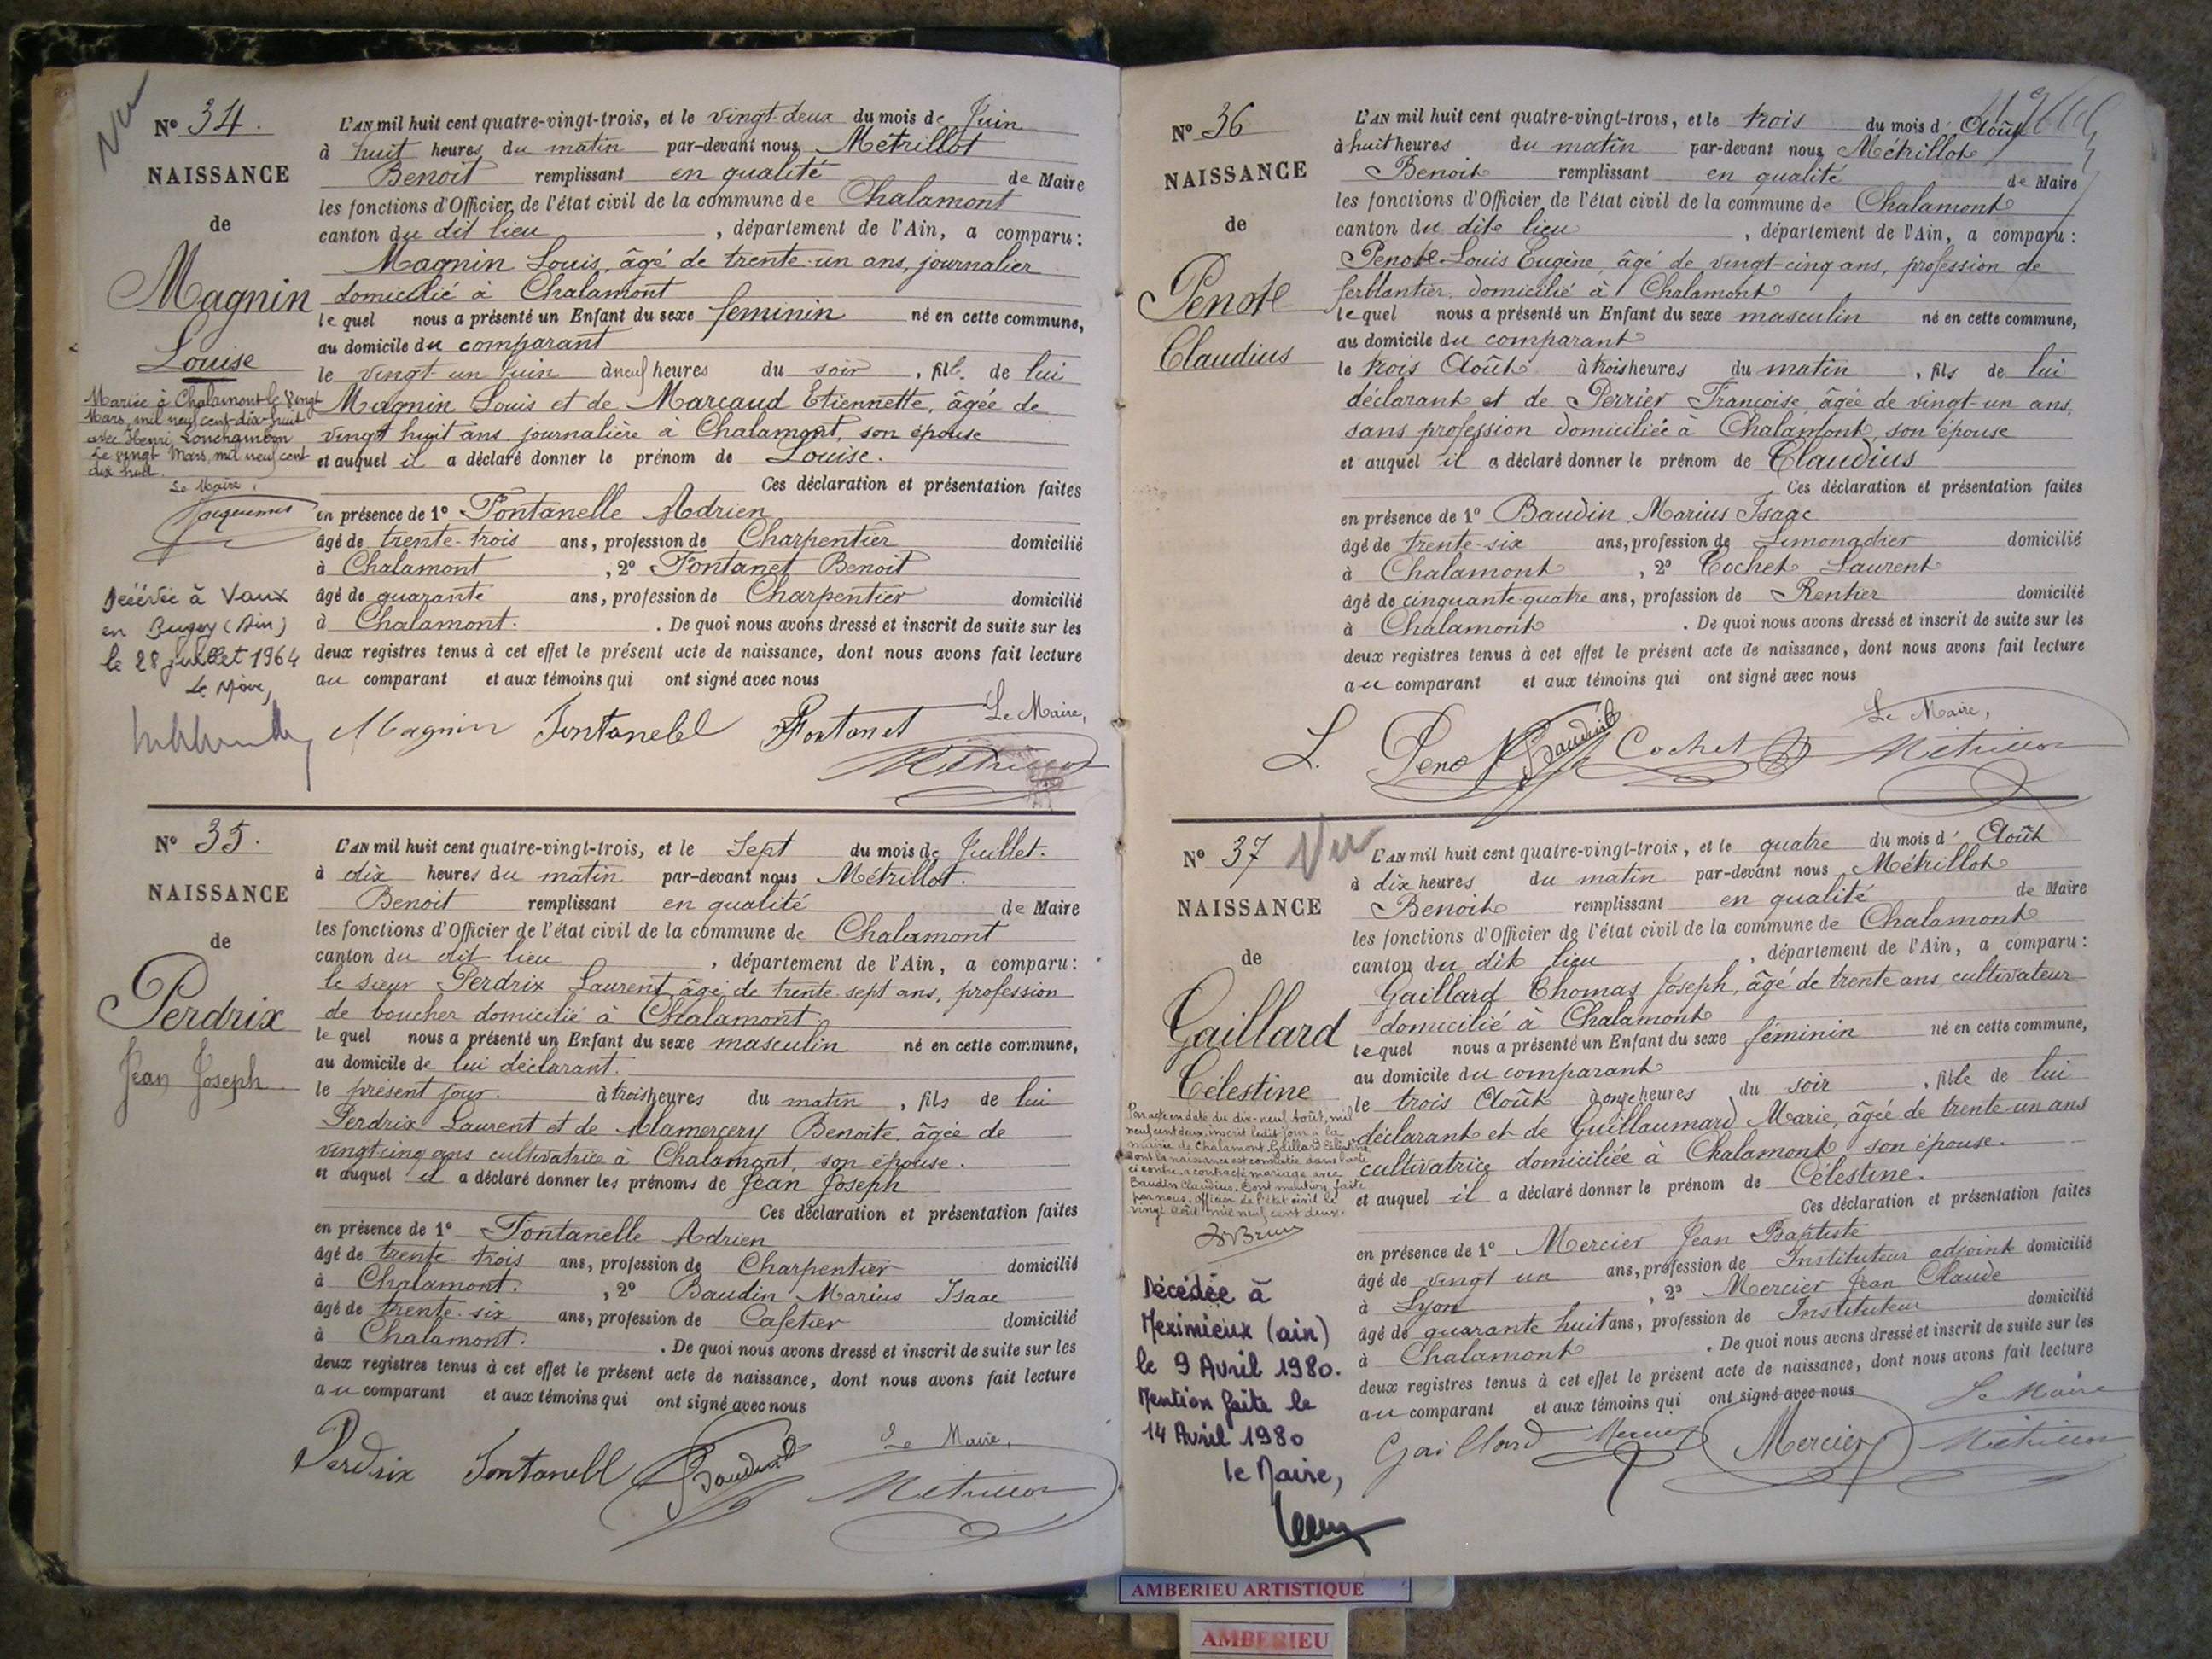 Vu
N° 34.
NAISSANCE
de
Magnin
Louise
Mariée à Chalamont le vingt
Mars, mil neuf cent dix-huit
avec Henri Lonchambon
Le vingt Mars, mil neuf cent
dix huit.
Le Maire,
Jacquemet
Décédée à Vaux
en Bugey (Ain)
le 28 juillet 1964
Le Maire,
L'AN mil huit cent quatre-vingt-trois, et le vingt-deux du mois de Juin
à huit heures du matin par-devant nous Métrillot
Benoit remplissant en qualité de Maire
les fonctions d'Officier de l'état civil de la commune de Chalamont
canton du dit lieu, département de l'Ain, a comparu:
Magnin Louis, âgé de trente-un ans, journalier
domicilié à Chalamont
lequel nous a présenté un Enfant du sexe feminin né en cette commune,
au domicile du comparant
le vingt un Juin à neuf heures du soir, fille de lui
Magnin Louis et de Marcaud Etiennette, âgée de
vingt huit ans journalière à Chalamont, son épouse
et auquel il a déclaré donner le prénom de Louise.
Ces déclaration et présentation faites
en présence de 1° Fontanelle Adrien
âgé de trente-trois ans, profession de Charpentier domicilié
à Chalamont, 2° Fontanet Benoit
âgé de quarante ans, profession de Charpentier domicilié
à Chalamont. . De quoi nous avons dressé et inscrit de suite sur les
deux registres tenus à cet effet le présent acte de naissance, dont nous avons fait lecture
au comparant et aux témoins qui ont signé avec nous
Le Maire,
Magnin Fontanell Fontanet
Métrillot
N° 35.
NAISSANCE
de
Perdrix
Jean Joseph
L'AN mil huit cent quatre-vingt-trois, et le Sept du mois de Juillet.
à dix heures du matin par-devant nous Métrillot.
Benoit remplissant en qualité de Maire
les fonctions d'Officier de l'état civil de la commune de Chalamont
canton du dit lieu, département de l'Ain, a comparu:
le sieur Perdrix Laurent âgé de trente sept ans, profession
de boucher domicilié à Chalamont
lequel nous a présenté un Enfant du sexe masculin né en cette commune,
au domicile de lui déclarant.
le présent jour. à trois heures du matin, fils de lui
Perdrix Laurent et de Mamercery Benoite âgée de
vingt cinq ans cultivatrice à Chalamont, son épouse.
et auquel il a déclaré donner les prénoms de Jean Joseph
Ces déclaration et présentation faites
en présence de 1° Fontanelle Adrien
âgé de trente-trois ans, profession de Charpentier domicilié
à Chalamont., 2° Baudin Marius Isaac
âgé de trente-six ans, profession de Cafetier domicilié
à Chalamont. . De quoi nous avons dressé et inscrit de suite sur les
deux registres tenus à cet effet le présent acte de naissance, dont nous avons fait lecture
au comparant et aux témoins qui ont signé avec nous
Le Maire,
Perdrix Fontanell Baudin
Métrillot
N° 36
NAISSANCE
de
Penot
Claudius
L'AN mil huit cent quatre-vingt-trois, et le trois du mois d'Août
à huit heures du matin par-devant nous Métrillot
Benoit remplissant en qualité de Maire
les fonctions d'Officier de l'état civil de la commune de Chalamont
canton du dit lieu, département de l'Ain, a comparu:
Penot Louis Eugène, âgé de vingt-cinq ans, profession de
ferblantier domicilié à Chalamont
lequel nous a présenté un Enfant du sexe masculin né en cette commune,
au domicile du comparant
le trois Août à trois heures du matin, fils de lui
déclarant et de Perrier Françoise âgée de vingt-un ans,
sans profession domiciliée à Chalamont, son épouse
et auquel il a déclaré donner le prénom de Claudius
Ces déclaration et présentation faites
en présence de 1° Baudin Marius Isaac
âgé de trente-six ans, profession de Limonadier domicilié
à Chalamont, 2° Cochet Laurent
âgé de cinquante-quatre ans, profession de Rentier domicilié
à Chalamont. De quoi nous avons dressé et inscrit de suite sur les
deux registres tenus à cet effet le présent acte de naissance, dont nous avons fait lecture
au comparant et aux témoins qui ont signé avec nous
Le Maire,
L. Penot Baudin Cochet Métrillot
N° 37 Vu
NAISSANCE
de
Gaillard
Célestine
Par acte en date du dix-neuf Août, mil
neuf cent deux, inscrit ledit jour à la
mairie de Chalamont, Gaillard Célestine
dont la naissance est constatée dans l'acte
ci contre, a contracté mariage avec
Baudin Claudius. Dont mention faite
par nous, officier de l'état civil le
vingt Août mil neuf cent deux.
Décédée à
Meximieux (ain)
le 9 Avril 1980.
Mention faite le
14 Avril 1980
le Maire,
L'AN mil huit cent quatre-vingt-trois, et le quatre du mois d'Août
à dix heures du matin par-devant nous Métrillot
Benoit remplissant en qualité de Maire
les fonctions d'Officier de l'état civil de la commune de Chalamont
canton du dit lieu, département de l'Ain, a comparu:
Gaillard Thomas Joseph, âgé de trente ans, cultivateur
domicilié à Chalamont
lequel nous a présenté un Enfant du sexe féminin né en cette commune,
au domicile du comparant
le trois Août à onze heures du soir, fille de lui
déclarant et de Guillaumard Marie, âgée de trente-un ans
cultivatrice domiciliée à Chalamont son épouse.
et auquel il a déclaré donner le prénom de Célestine.
Ces déclaration et présentation faites
en présence de 1° Mercier Jean Baptiste
âgé de vingt un ans, profession de Instituteur adjoint domicilié
à Lyon, 2° Mercier Jean Claude
âgé de quarante huit ans, profession de Instituteur domicilié
à Chalamont. De quoi nous avons dressé et inscrit de suite sur les
deux registres tenus à cet effet le présent acte de naissance, dont nous avons fait lecture
au comparant et aux témoins qui ont signé avec nous
Le Maire
Gaillard Mercier Mercier Métrillot
AMBERIEU ARTISTIQUE
AMBERIEU